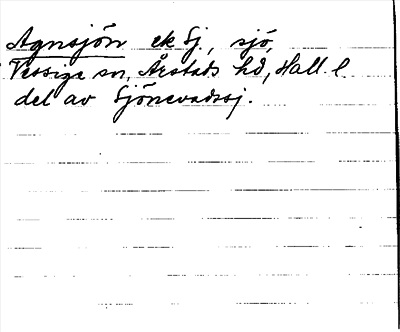 Agnsjön ek Sj., sjö,
Vessige sn, Årstads hd, Hall. l.
del av Sjönevadssj.